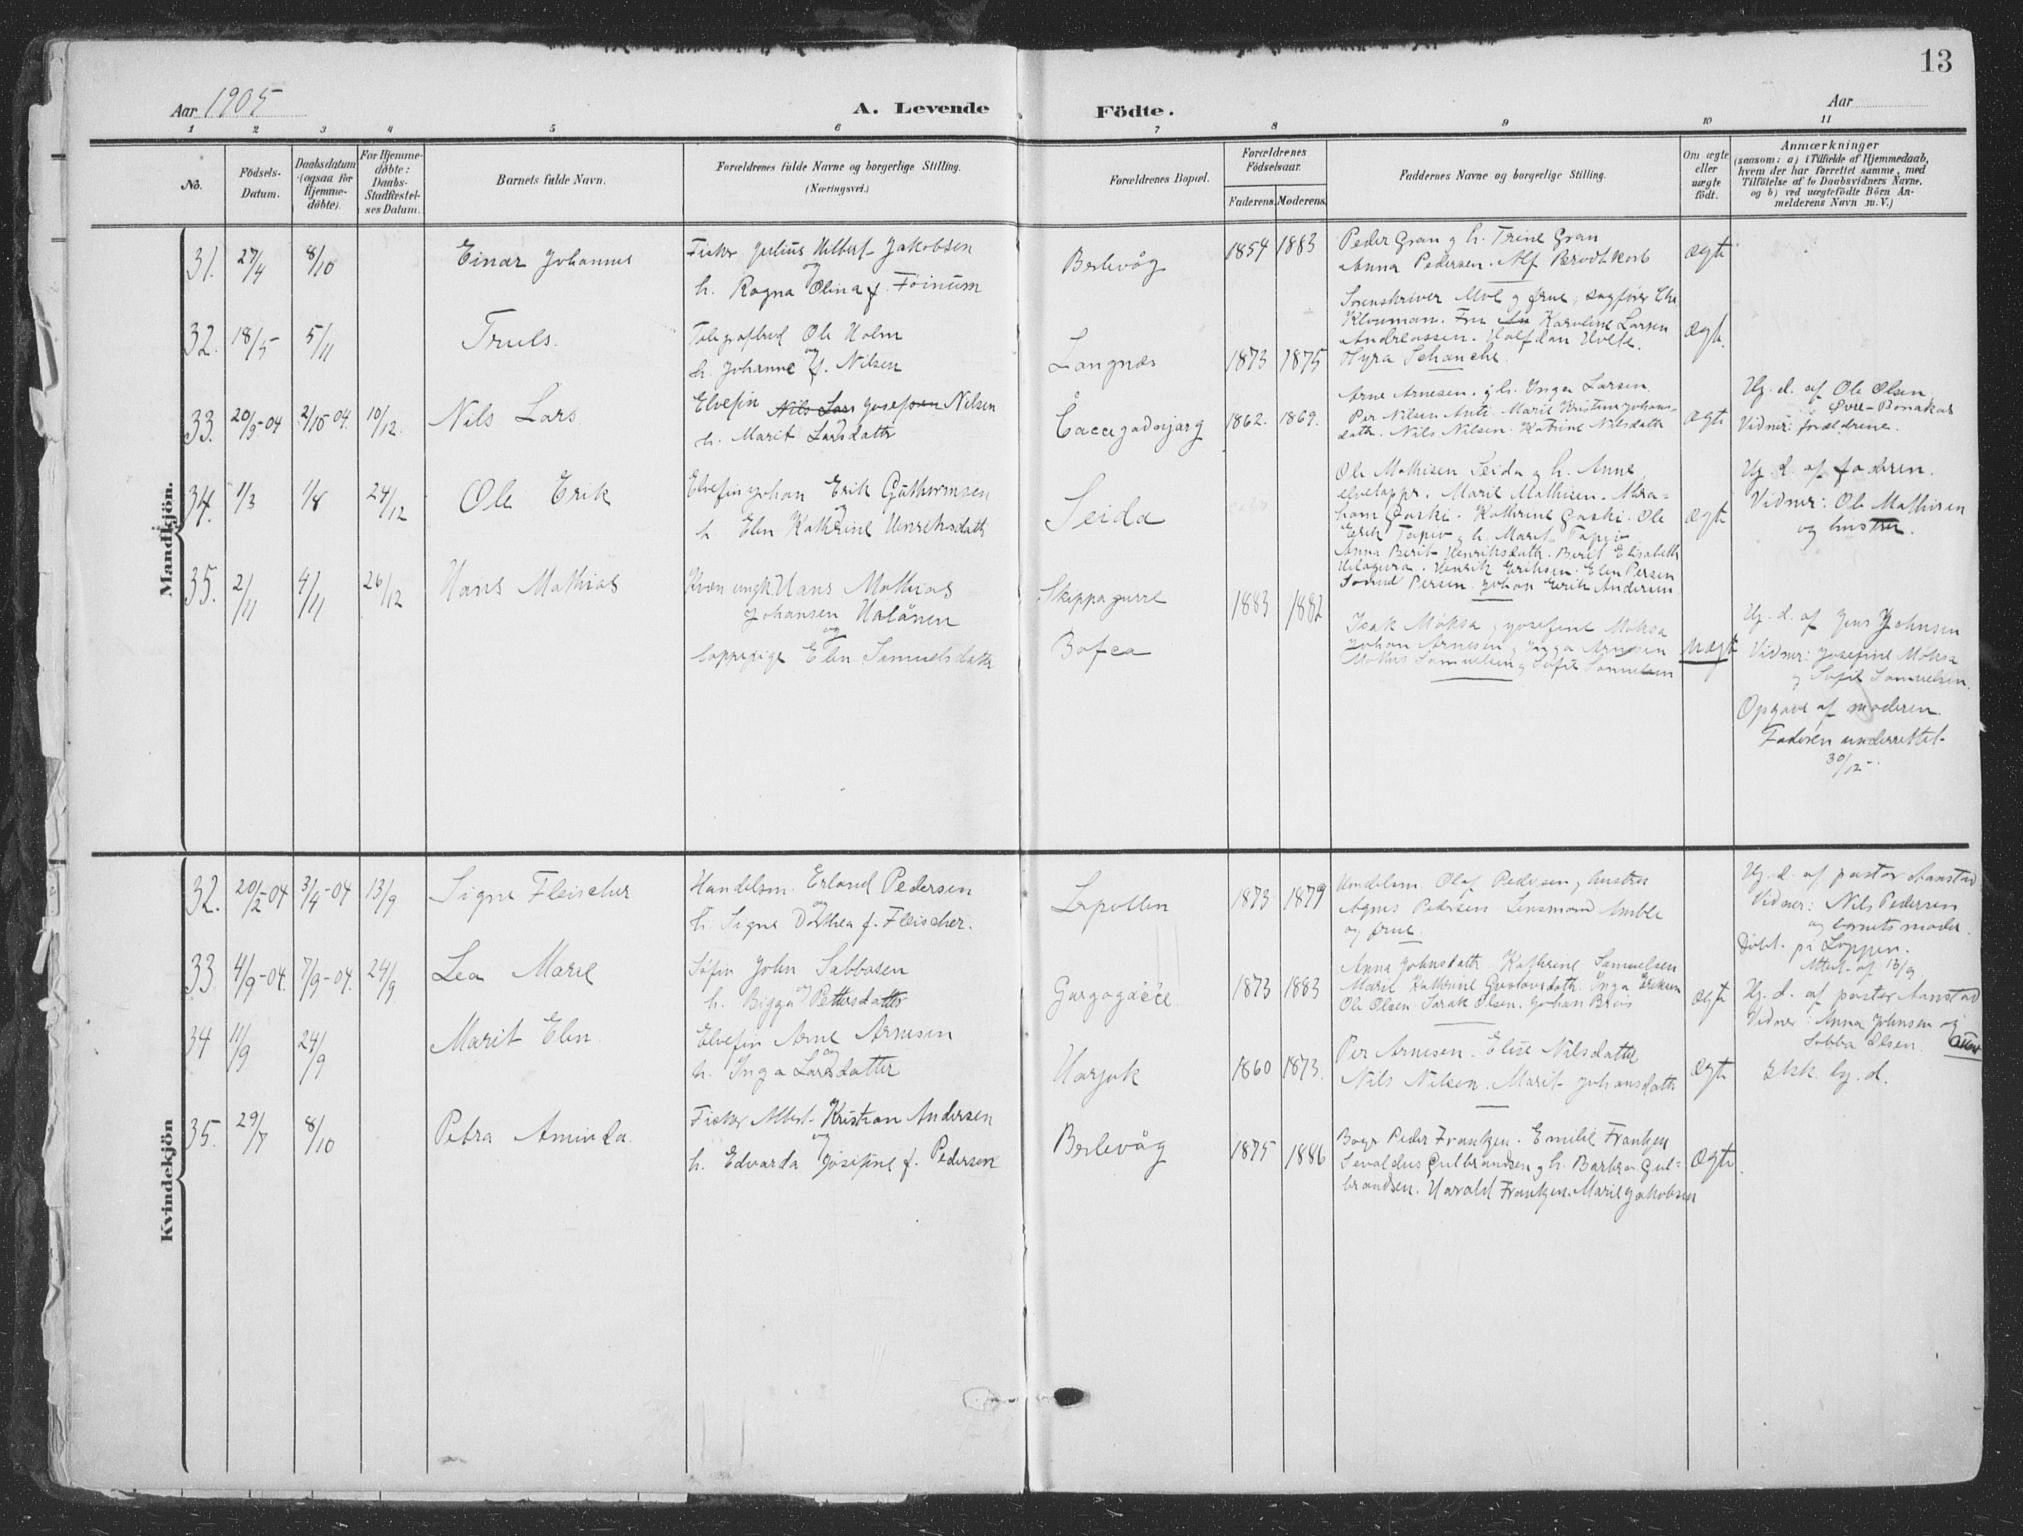 13
Aar 1905
A. Levende
Födte.
Aar
1 2 3 4 5 6 7 8 9 10 11
No.
Födsels-
Datum.
Daabsdatum
(ogsaa for
Hjemme-
døbte).
For Hjemme-
døbte:
Daabs-
Stadfæstel-
ses Datum.
Barnets fulde Navn.
Forældrenes fulde Navne og borgerlige Stilling.
(Næringsvei.)
Forældrenes Bopæl.
Forældrenes
Födselsaar.
Faderens. Moderens.
Faddernes Navne og borgerlige Stilling.
Om ægte
eller
uægte
födt.
Anmærkninger
(saasom: a) i Tilfælde af Hjemmedaab,
hvem der har forrettet samme, med
Tilföielse af to Daabsvidners Navne,
og b) ved uægtefödte Börn An-
melderens Navn m. V.)
Mandkjön.
31. 27/4 8/10 Einar Johannes
Fisker Julius Hilbert Jakobsen
og
h. Ragna Olina f. Föinum
Berlevåg
1854 1883
Peder Gran og h. Trine Gran
Anna Pedersen. Alf
ægte
32. 18/5 5/11 Truls.
Telegrafbud Ole Holm
og
h. Johanne f. Nilsen
Langnæs
1873 1875
Sorenskriver og frue, sagfører Chr.
Klouman. Fru Karoline Larsen
Andreassen. Halfdan Holte.
Hyra Schanche.
ægte.
33. 20/9-04 2/10-04. 10/12. Nils Lars
Elvefin Nils Lars Josefsen Nilsen
h. Marit Larsdatter
1862. 1869.
Arne Arnesen og h. Inga Larsen.
Per Nilsen Anti. Marie Kristine Johans-
datt. Nils Nilsen. Katrine Nilsdatt
ægte
Hj. d. af Ole Olsen
Øvre-Bonakas
Vidner: forældrene.
34. 1/3 1/8 24/12 Ole Erik
Elvefin Johan Erik Guttormsen
og
h. Elen Kathrine Henriksdatt
Seida
Ole Mathisen Seida og h. Anne
elvelapper. Marie Mathisen. Abra-
ham Gaski. Kathrine Gaski. Ole
Erik Tapio og h. Marit Tapio
Anna Berit Henriksdatt. Berit Elisabeth
Henrik Eriksen. Elen Persen
Persen. Johan Erik Andersen
ægte
Hj. d. af faderen.
Vidner: Ole Mathisen
og hustru
35. 2/11 4/11 26/12 Hans Mathias
Kvæn ungk. Hans Mathias
Johansen Halånen
og
lappepige Elen Samuelsdatt
Skippagurre
Bofea
1883 1882
Isak Møksa og Josefine Møksa
Johan Arnesen og Inga Arnesen
Mathis Samuelsen og Sofie Samuelsen
uægte
Hj. d. af Jens Johnsen
Vidner: Josefine Møksa
og Sofie Samuelsen.
Opgave af moderen.
Faderen underrettet
30/12
Kvindekjön
32. 20/2-04 3/4-04 13/9 Signe Fleischer
Handelsm. Erland Pedersen
og
h. Signe Dorthea f. Fleischer.
Lepollen
1873 1879
Handelsm. Olaf Pedersen og hustru
Agnes Pedersen. Lensmand Amble
og frue.
Hj. d. af pastor Aanstad
Vidner: Nils Pedersen
og barnets moder.
Døbt på Loppen.
Attest af 13/9.
33 4/9-04. 7/9-04. 24/9 Lea Marie
Søfin John Sabbasen
og
h. Bigga Pettersdatter
1873 1883
Anna Johnsdatt. Kathrine Samuelsen
Marie Kathrine Gustavsdatt. Inga Eriksen
Ole Olsen. Sarak Olsen. Johan Briis
ægte
Hj. d. af pastor Aanstad
Vidner: Anna Johnsen og
Sabba Olsen.
34 11/9 24/9 Marit Elen.
Elvefin Arne Arnesen
og
h. Inga Larsdatter
Harjok
1860 1873.
Per Arnesen. Elise Nilsdatter
Nils Nilsen. Marit Johansdatt
ægte
Elsk. hj. d.
35. 29/7 8/10 Petra Aminda.
Fisker Albert Kristian Andersen
og
h. Edvarda Josefine f. Pedersen
Berlevåg
1875 1886
Peder Frantzen. Emilie Frantzen
Sevaldus Gulbrandsen og h. Barbra Gul-
brandsen. Harald Frantzen. Marie Jakobsen
ægte.